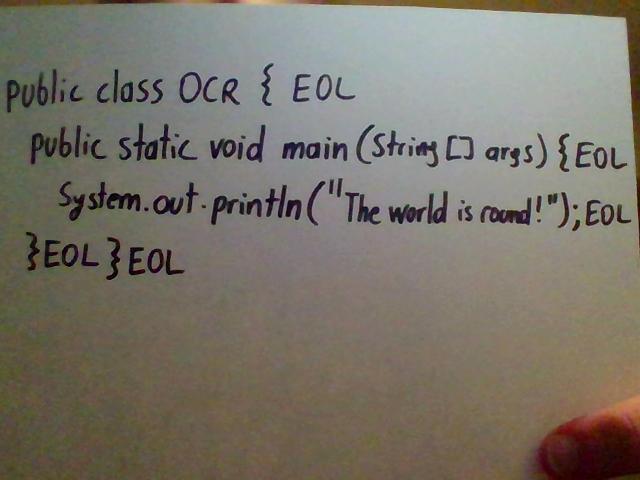 public class OCR { EOL
public static void main (String [] args) { EOL
System.out.println("The world is round!"); EOL
} EOL } EOL